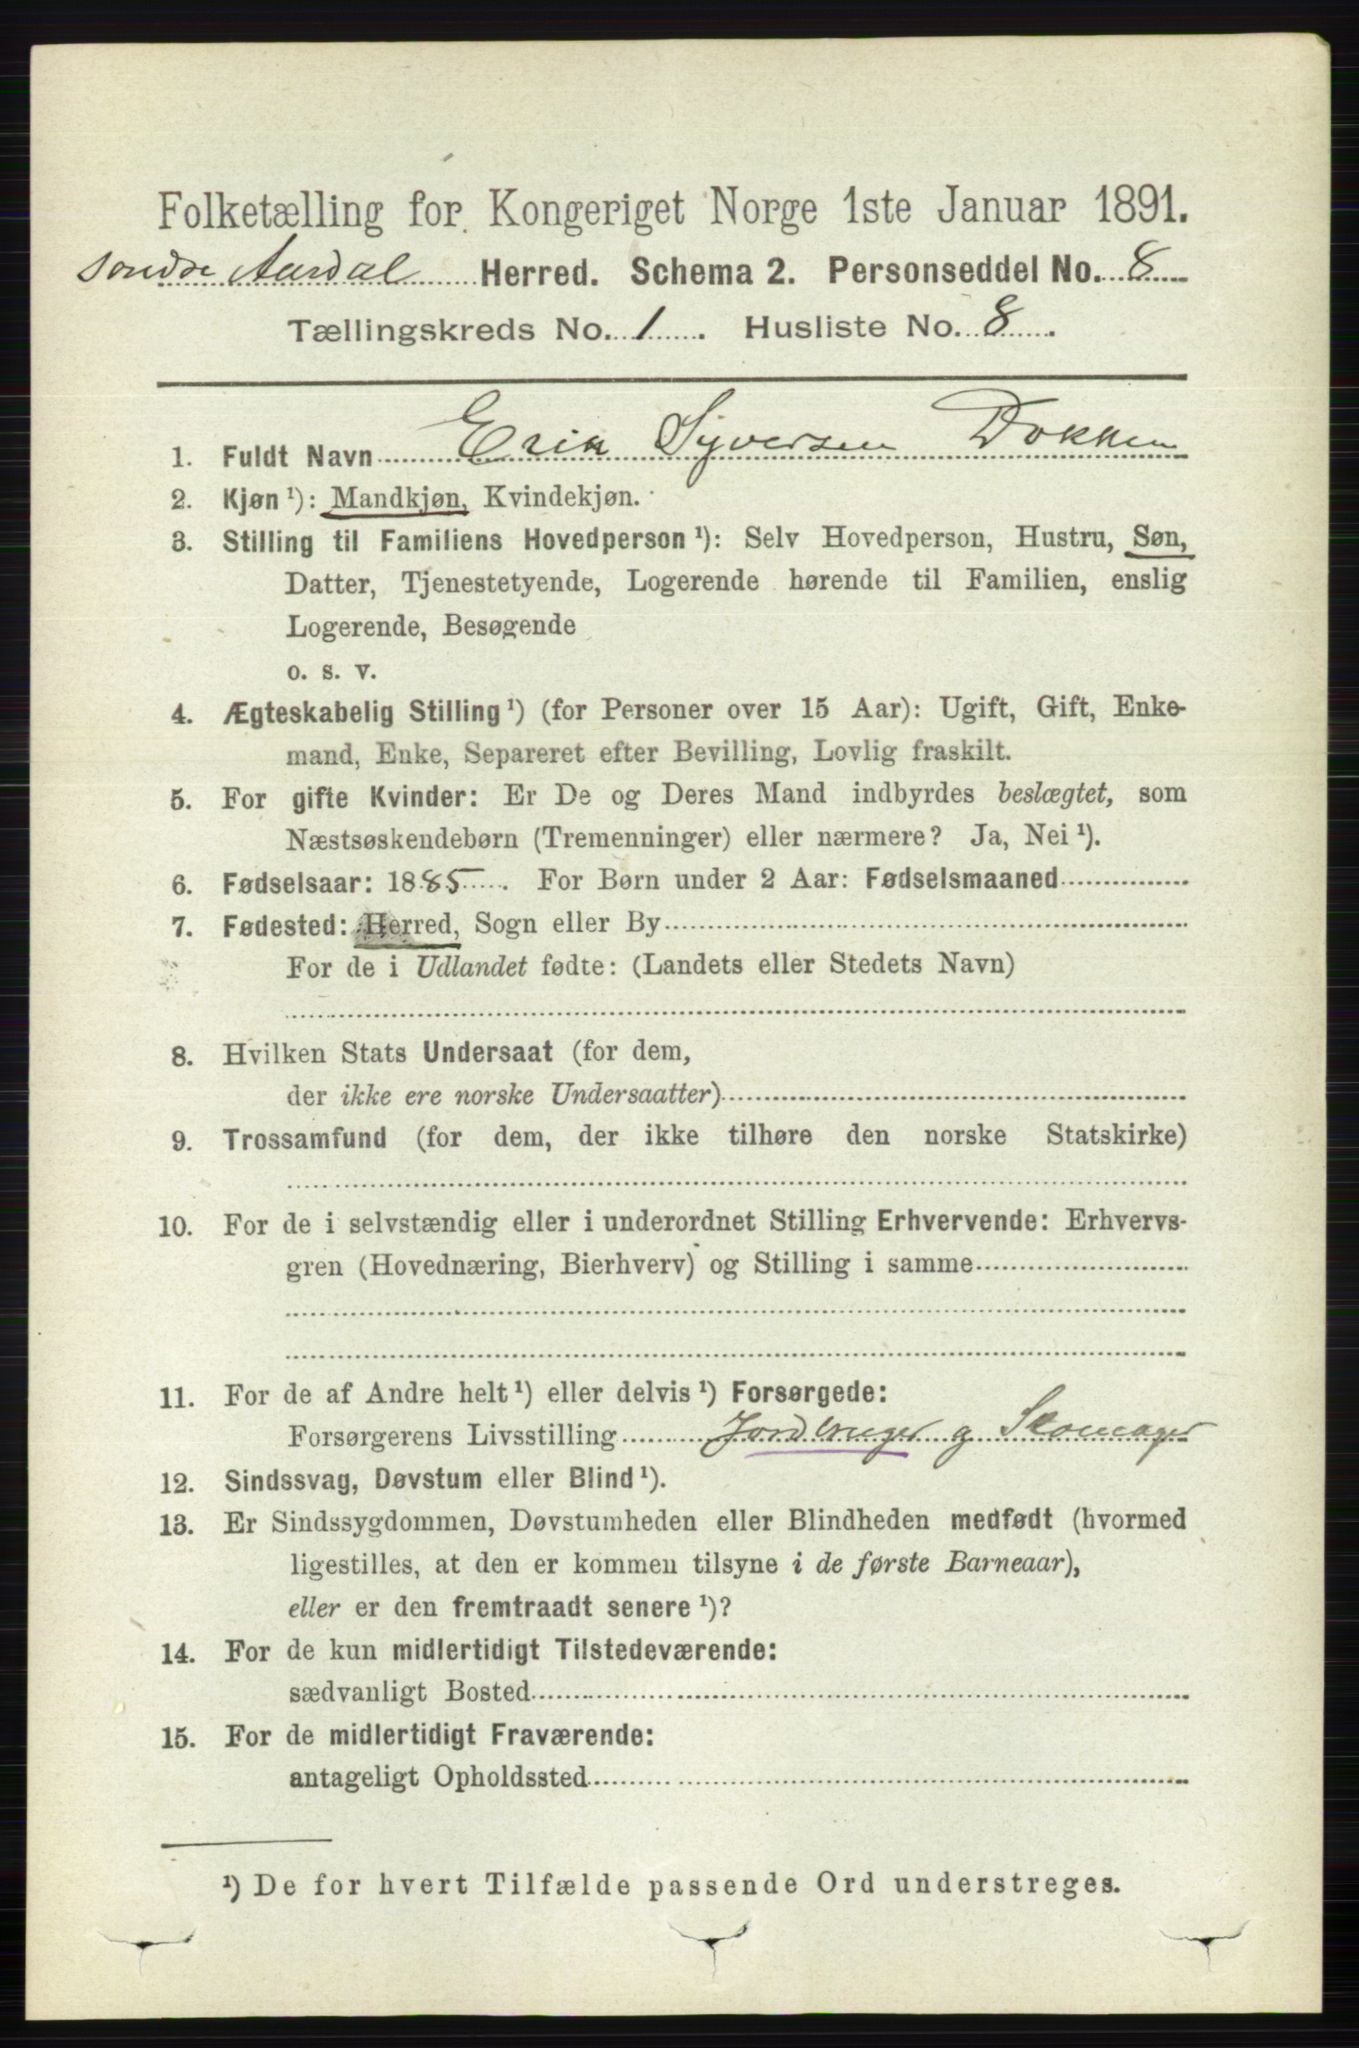 Folketælling for Kongeriget Norge 1ste Januar 1891.
søndre Aurdal Herred. Schema 2. Personseddel No. 8
Tællingskreds No. 1. Husliste No. 8.
1. Fuldt Navn Erik Syversen Dokken
2. Kjøn ¹): Mandkjøn, Kvindekjøn.
3. Stilling til Familiens Hovedperson ¹): Selv Hovedperson, Hustru, Søn,
Datter, Tjenestetyende, Logerende hørende til Familien, enslig
Logerende, Besøgende
o. s. v.
4. Ægteskabelig Stilling ¹) (for Personer over 15 Aar): Ugift, Gift, Enke-
mand, Enke, Separeret efter Bevilling, Lovlig fraskilt.
5. For gifte Kvinder: Er De og Deres Mand indbyrdes beslægtet, som
Næstsøskendebørn (Tremenninger) eller nærmere? Ja, Nei ¹).
6. Fødselsaar: 1885. For Børn under 2 Aar: Fødselsmaaned
7. Fødested: Herred, Sogn eller By
For de i Udlandet fødte: (Landets eller Stedets Navn)
8. Hvilken Stats Undersaat (for dem,
der ikke ere norske Undersaatter)
9. Trossamfund (for dem, der ikke tilhøre den norske Statskirke)
10. For de i selvstændig eller i underordnet Stilling Erhvervende: Erhvervs-
gren (Hovednæring, Bierhverv) og Stilling i samme
11. For de af Andre helt ¹) eller delvis ¹) Forsørgede:
Forsørgerens Livsstilling Jordbruger g Skomager
12. Sindssvag, Døvstum eller Blind ¹).
13. Er Sindssygdommen, Døvstumheden eller Blindheden medfødt (hvormed
ligestilles, at den er kommen tilsyne i de første Barneaar),
eller er den fremtraadt senere ¹)?
14. For de kun midlertidigt Tilstedeværende:
sædvanligt Bosted
15. For de midlertidigt Fraværende:
antageligt Opholdssted
¹) De for hvert Tilfælde passende Ord understreges.